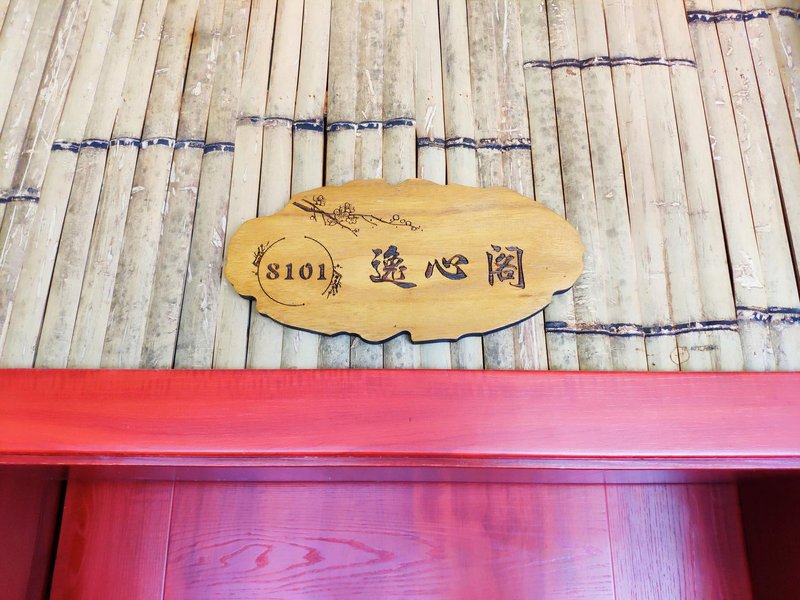 8101 逸心阁